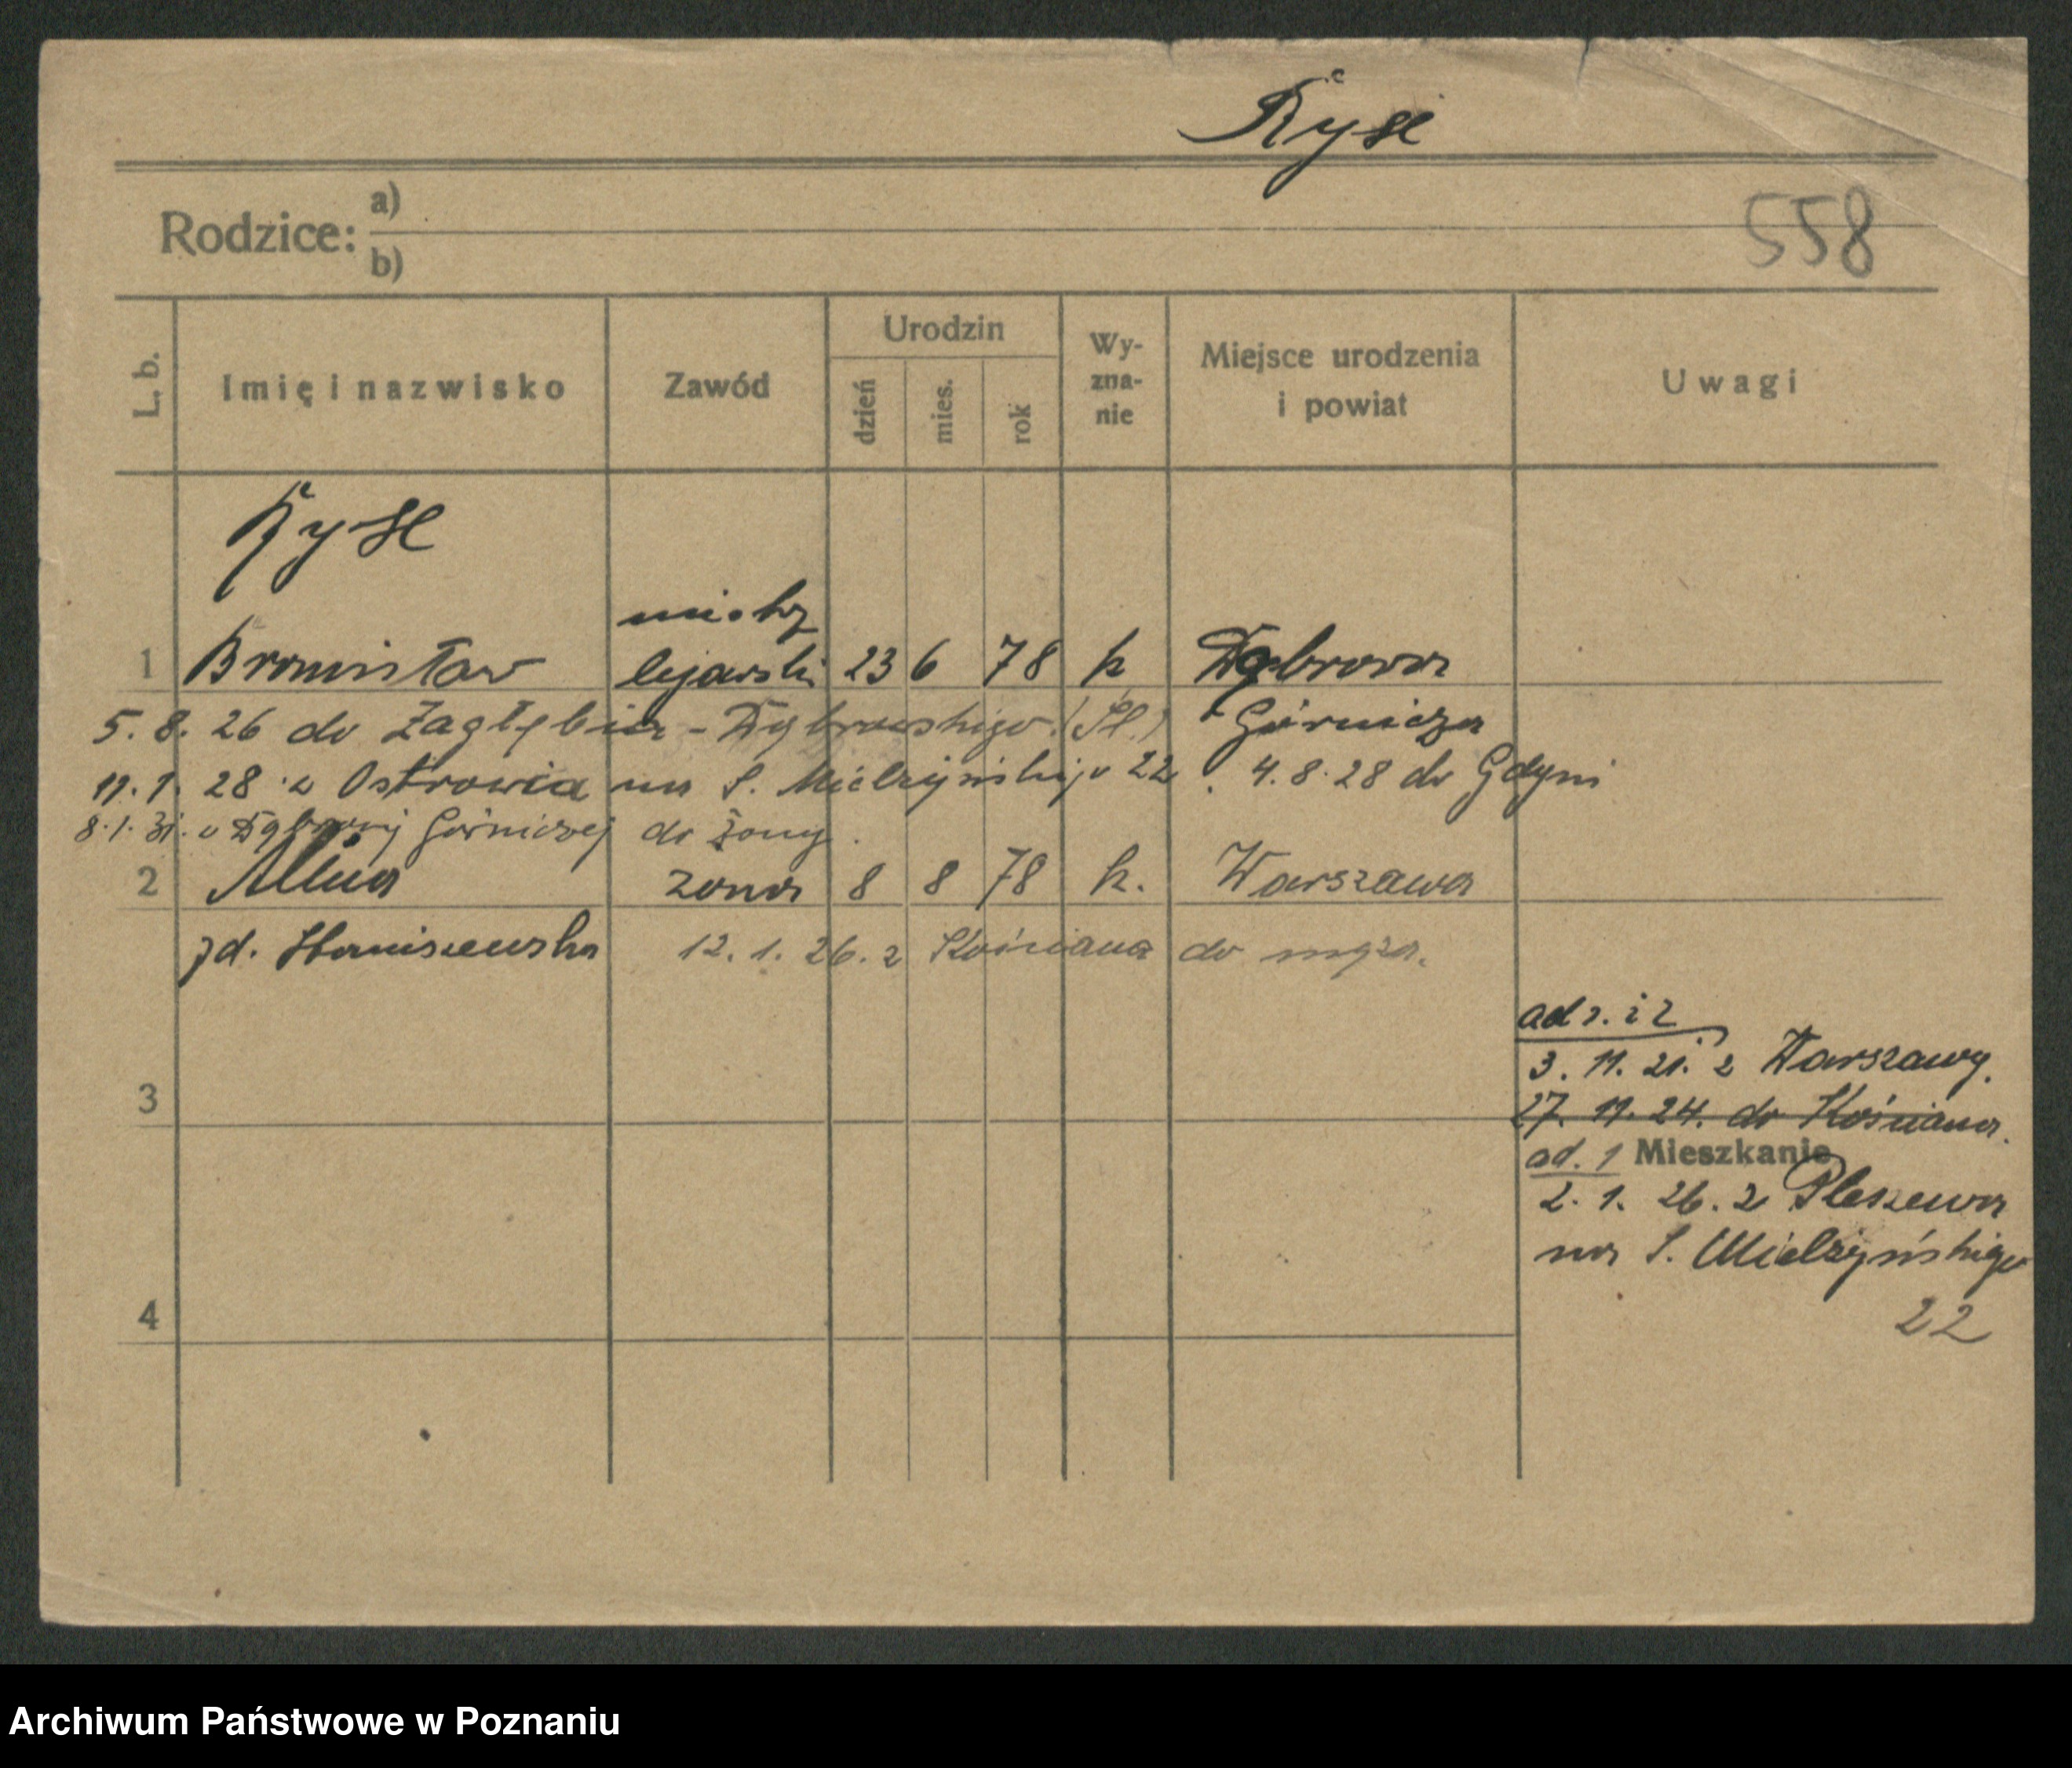 Ryse
Rodzice: a)
b)
558
L. b.
Imię i nazwisko
Zawód
Urodzin
dzień
mies.
rok
Wy-
zna-
nie
Miejsce urodzenia
i powiat
Uwagi
Ryse
1 Bronisław 23 6 78 k Dąbrowa
5. 8. 26 do Zagłębia - Dąbrowskiego (Śl.) Górnicza
11. 1. 28 z Ostrowia na S. Mielżyńskiego 22. 4. 8. 28 do Gdyni
8. 1. 31. z Dąbrowy Górniczej do żony.
2 żona 8 8 78 k. Warszawa
12. 1. 26. z Kościana do męża.
ad 1. i 2
3. 11. 21. z Warszawy.
3
27. 11. 24. do Kościana.
ad. 1 Mieszkanie
2. 1. 26. z Pleszewa
na S. Mielżyńskiego
22
4
Archiwum Państwowe w Poznaniu